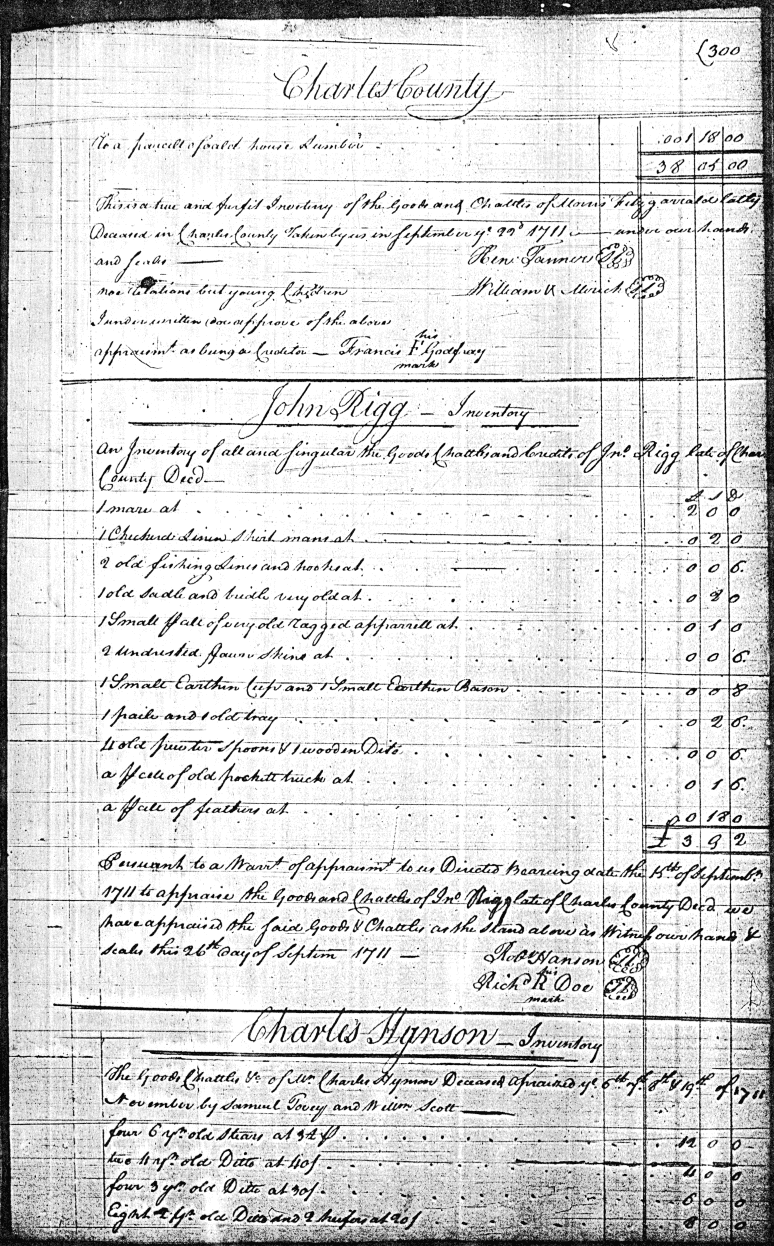 £300
Charles County
To a parcell of old house Lumber 001 18 00
38 05 00
This is a true and perfit Inventory of the Goods and Chattles of Morris Fitzgarrald lately
Deceased in Charles County Taken by us in September ye 22d 1711 — under our hands
and seals — Hen: Tanner
noe Relations but young Children William Merick
I underwritten doe approve of the above
appraismt. as being a Creditor — Francis F Godfray
his
mark
John Rigg — Inventory
An Inventory of all and singular the Goods Chattles and Credits of Jno. Rigg late of Char
County Decd —
£ s d
1 mare at 2 0 0
1 Checkerd Linen Shirt mans at 0 2 0
2 old fishing Lines and hooks at 0 0 6
1 old sadle and bridle very old at 0 2 0
1 Small pcell of very old ragged apparrell at 0 1 0
2 undressed fawn skins at 0 0 6
1 Small Earthen Cup and 1 Small Earthen Bason 0 0 8
1 paile and 1 old tray 0 2 6
4 old pewter Spoons & 1 wooden Dito 0 0 6
a pcell of old pockett truck at 0 1 6
a pcell of feathers at 0 18 0
£ 3 9 2
Persuant to a Warrt. of appraismt. to us Directed Bearing date the 15th of Septembr
1711 to appraise the Goods and Chattles of Jno. Rigg late of Charles County Decd we
have appraised the said Goods & Chattles as the stand above as Witness our hands &
seales this 26th day of Septem 1711 — Robt Hanson
Richd R Doe
his
mark
Charles Hynson — Inventory
The Goods Chattles &c of Mr. Charles Hynson Deceased apraized ye 6th 7th 8th & 19th of 1711
November by Samuel Tovey and Willm Scott —
four 6 yr. old stears at 12 0 0
two 4 yr. old Ditto at 40s 4 0 0
four 3 yr. old Ditto at 30s 6 0 0
Eight 2 yr. old Ditto and 2 heifers at 20s 8 0 0